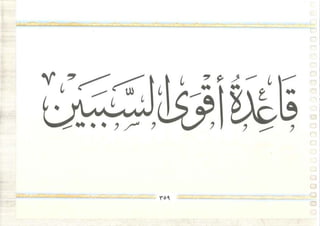 قَاعِدَةُ أَقْوَى السَّبَبَيْنِ
٣٥٩